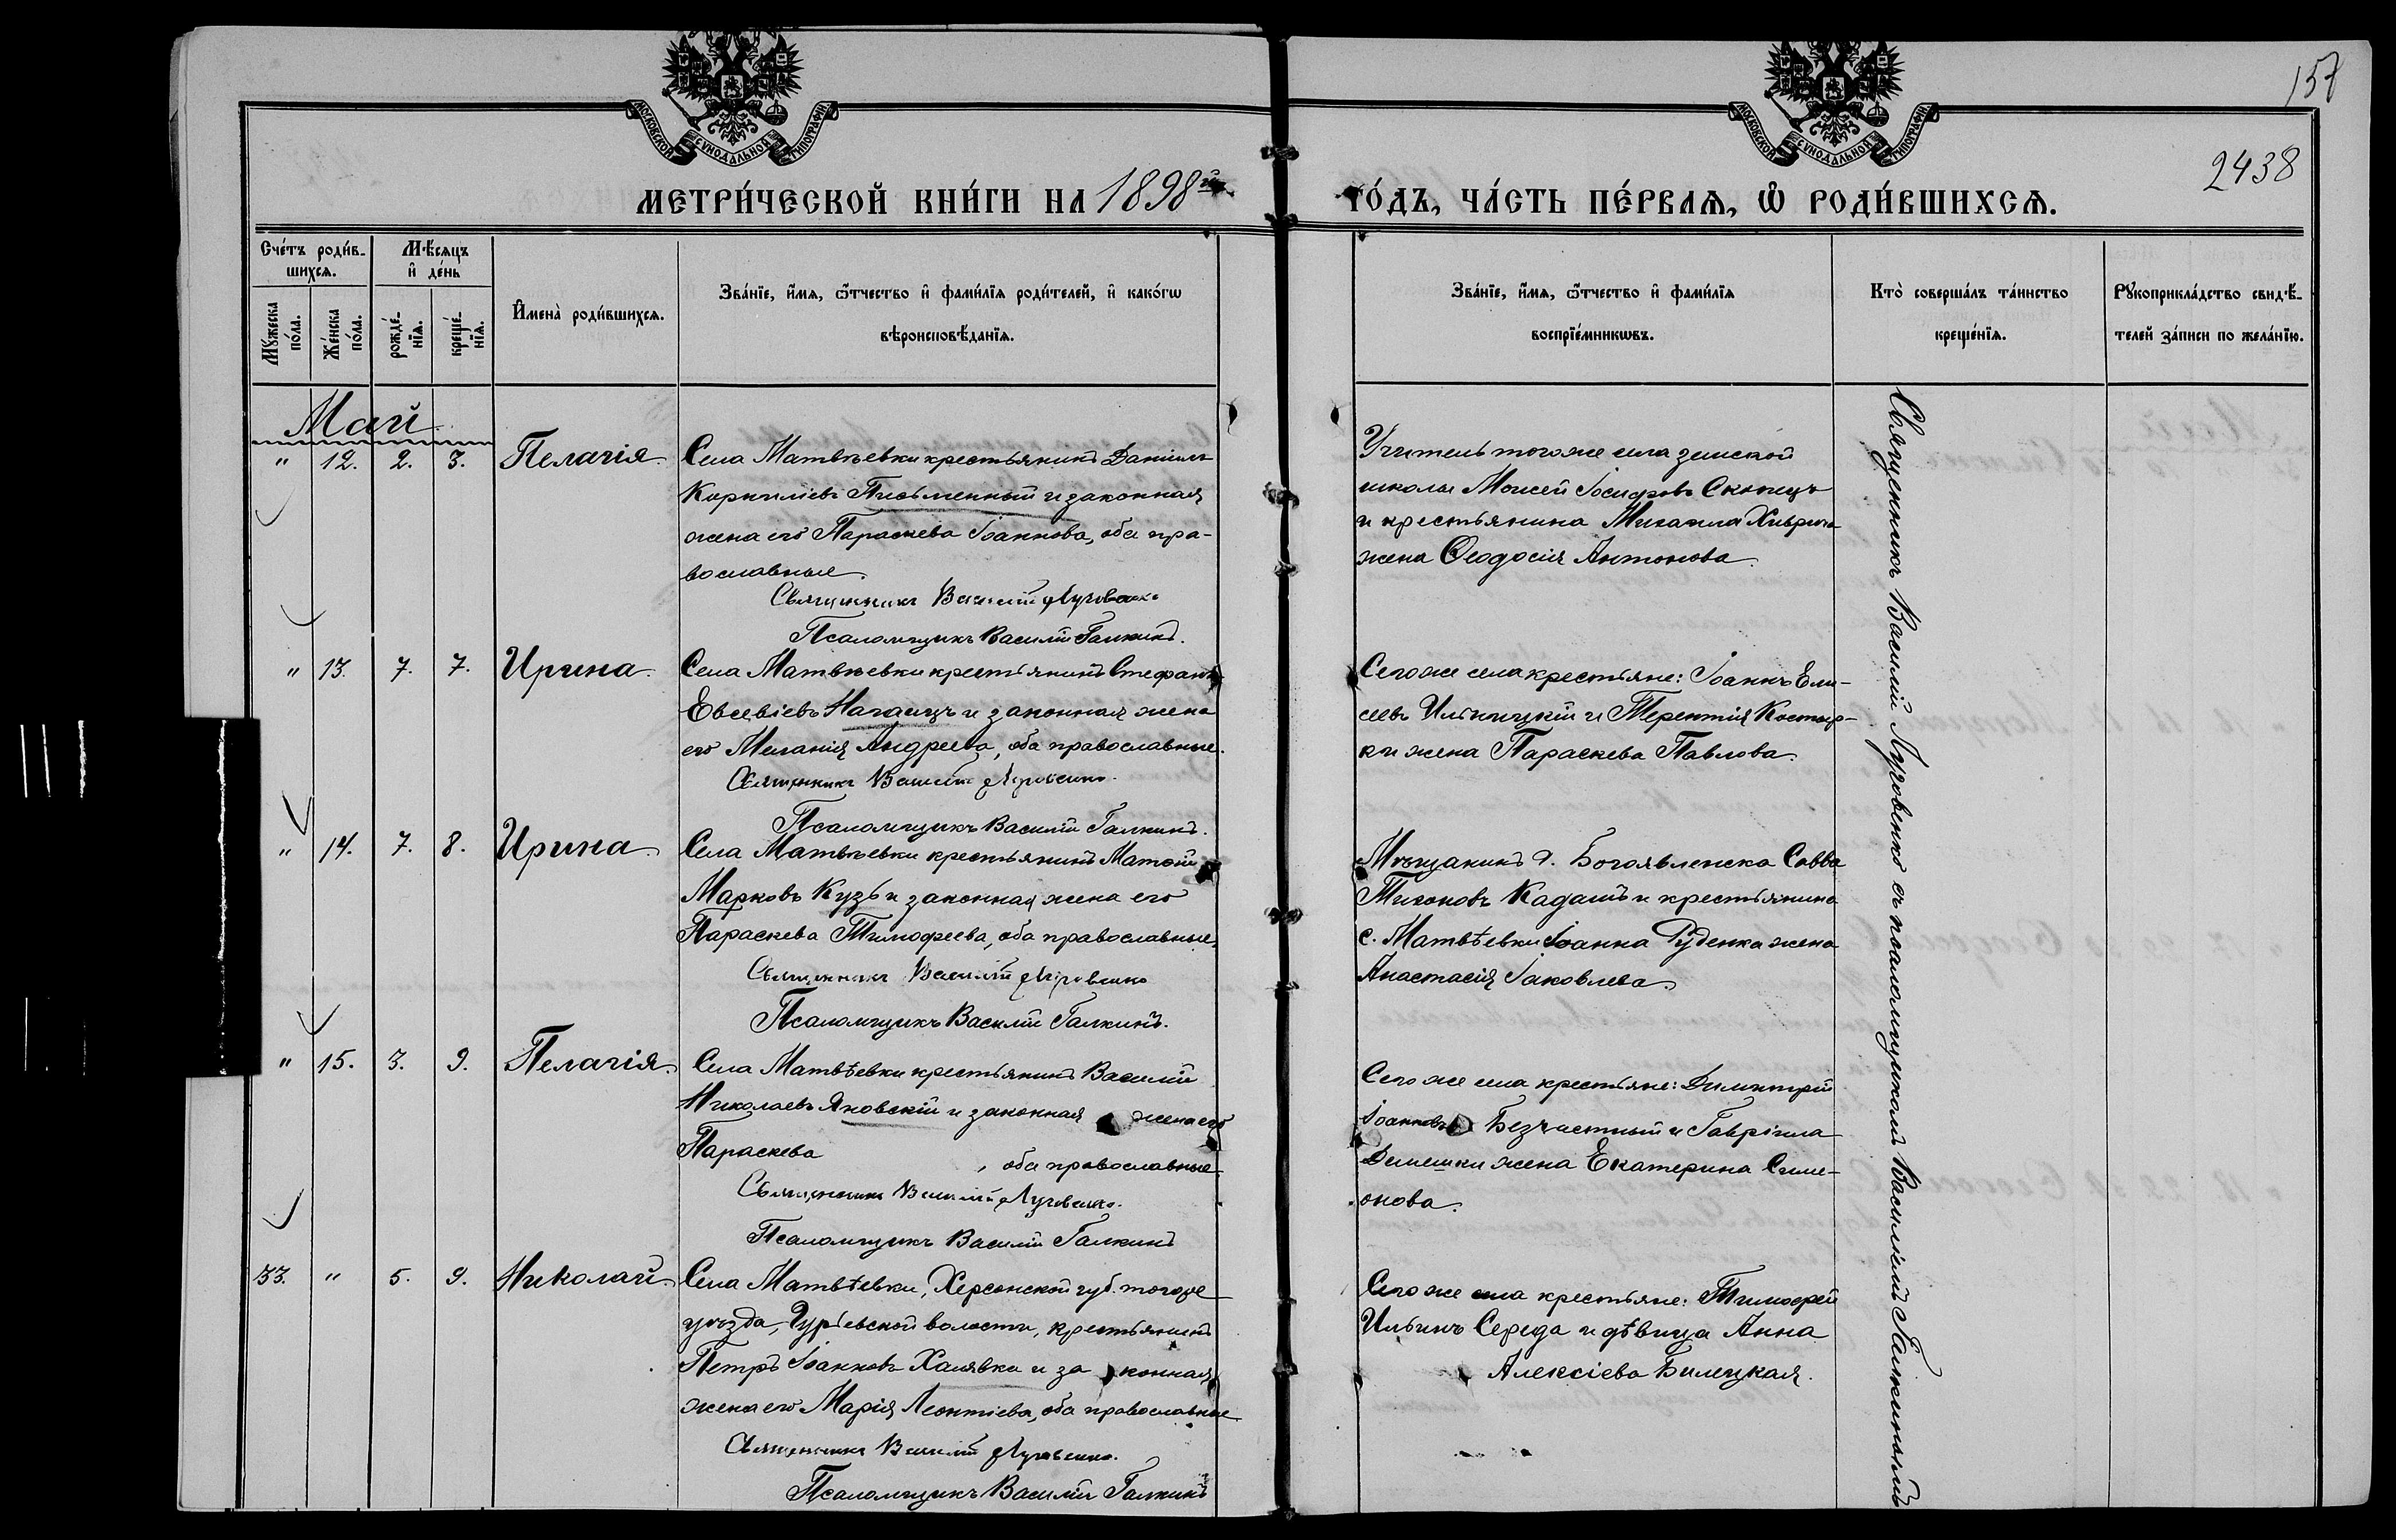 МОСКОВСКОЙ СѴНОДАЛЬНОЙ ТИПОГРАФІИ
МОСКОВСКОЙ СѴНОДАЛЬНОЙ ТИПОГРАФІИ
157
2438
МЕТРИ́ЧЕСКОЙ КНИ́ГИ НА 1898й
ГО́ДЪ, ЧА́СТЬ ПЕ́РВАѦ, Ѡ҆ РОДИ́ВШИХСѦ.
Сче́тъ роди́в-
шихсѧ.
Мѣ́сѧцъ
и҆ де́нь
Мꙋ́жеска
по́ла.
Же́нска
по́ла.
рожде́-
нїѧ.
креще́-
нїѧ.
И҆мена̀ роди́вшихсѧ.
Зва́нїе, и҆́мѧ, ѻ҆́тчество и҆ фами́лїѧ роди́телей, и҆ како́гѡ
вѣроисповѣ́данїѧ.
Зва́нїе, и҆́мѧ, ѻ҆́тчество и҆ фами́лїѧ
воспрїе́мникѡвъ.
Кто̀ соверша́лъ та́инство
креще́нїѧ.
Рꙋкоприкла́дство свидѣ́-
телей за́писи по жела́нїю.
Май
" 12. 2. 3. Пелагія.
Села Матвѣевки крестьянинъ Даніилъ
Корниліевъ Письменный и законная
жена его Параскева Іоаннова, оба пра-
вославные.
Священникъ Василій Луговенко
Псаломщикъ Василій Галкинъ.
Учитель того же села земской
школы Моисей Іосифовъ
и крестьянина Михаила
жена Ѳеодосія Антонова.
" 13. 7. 7. Ирина.
Села Матвѣевки крестьянинъ Стефанъ
Евсевіевъ Нагаецъ и законная жена
его Меланія Андреева, оба православные.
Священникъ Василій Луговенко.
Псаломщикъ Василій Галкинъ.
Сего же села крестьяне: Іоаннъ Ели-
сеевъ Ильницкій и Терентія Костыр-
ки жена Параскева Павлова.
" 14. 7. 8. Ирина.
Села Матвѣевки крестьянинъ
Марковъ Кузь и законная жена его
Параскева Тимофеева, оба православные.
Священникъ Василій Луговенко
Псаломщикъ Василій Галкинъ.
Мѣщанинъ г. Богоявленска Савва
Тихоновъ Кадашъ и крестьянина
с. Матвѣевки Іоанна Руденка жена
Анастасія Іаковлева.
" 15. 3. 9. Пелагія.
Села Матвѣевки крестьянинъ Василій
Николаевъ Яновскій и законная жена его
Параскева , оба православные.
Священникъ Василій Луговенко.
Псаломщикъ Василій Галкинъ
Сего же села крестьяне: Димитрій
Іоанновъ Безчастный и Гавріила
жена Екатерина Симе-
онова.
33. " 5. 9. Николай.
Села Матвѣевки, Херсонской губ. того же
уѣзда, Гурьевской волости, крестьянинъ
Петръ Іоанновъ Халявка и законная
жена его Марія Леонтіева, оба православные
Священникъ Василій Луговенко.
Псаломщикъ Василій Галкинъ
Сего же села крестьяне: Тимофей
Ильинъ Середа и дѣвица Анна
Алексіева Билецкая.
Священникъ Василій Луговенко съ псаломщикомъ Василіемъ Галкинымъ